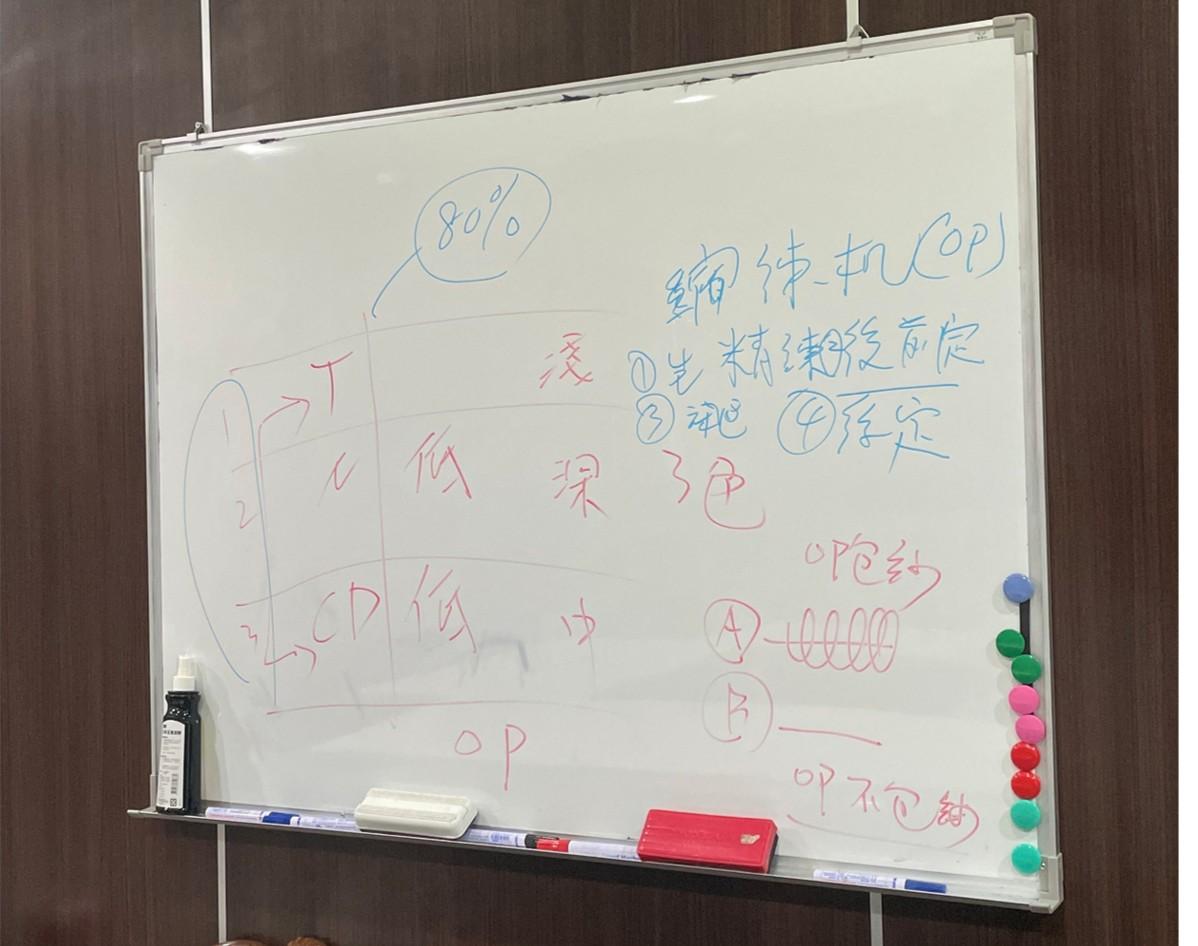 80%
T 淺
1
2
N 低 深 3色
3
CD 低 中
OP
縮練机(OP)
①生 精練後前定
③染色 ④後定
OP包紗
Ⓐ
Ⓑ
OP不包紗